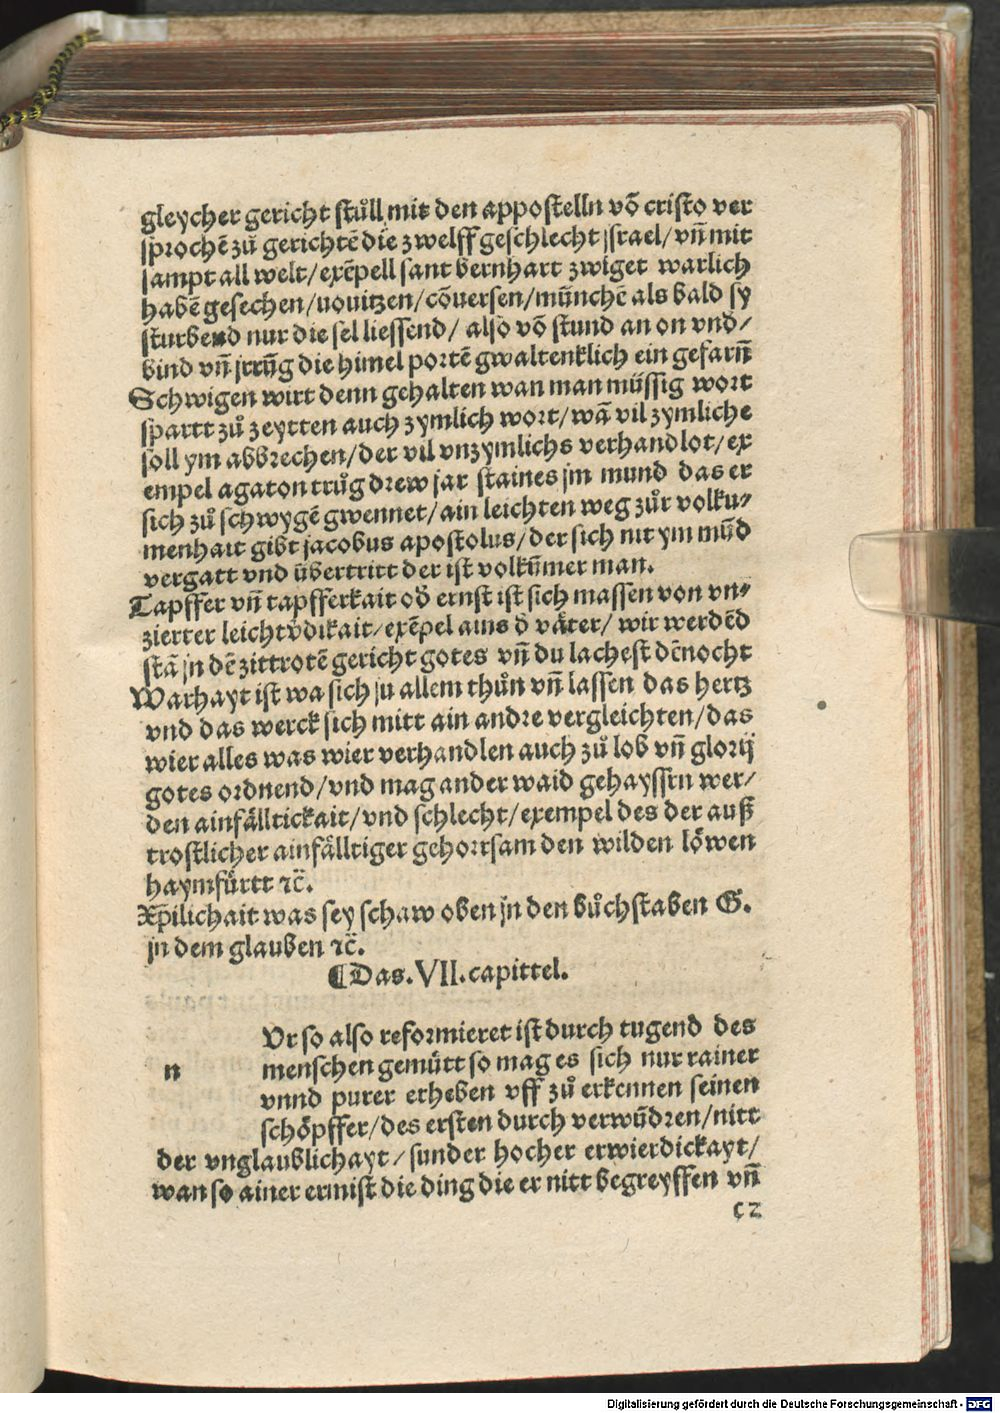 gleycher gericht stůll mit den appostelln võ cristo ver
sprochē zů gerichtē die zwelff geschlecht jsrael/ vñ mit
sampt all welt/ exēpell sant bernhart zwiget warlich
habē gesechen/ nouitzen/ cōuersen/ münchē als bald sy
sturbend nur die sel liessend/ also võ stund an on vnd/
bind vñ jrrūg die himel portē gwaltenklich ein gefarñ
Schwigen wirt denn gehalten wan man müssig wort
spartt zů zeytten auch zymlich wort/ wā vil zymliche
soll ym abbrechen/ der vil vnzymlichs verhandlot/ ex
empel agaton trůg drew jar staines jm mund das er
sich zů schwygē gwennet/ ain leichten weg zůr volku/
menhait gibt jacobus apostolus/ der sich nit ym mūd
vergatt vnd übertritt der ist volkūmer man.
Tapffer vñ tapfferkait od̄ ernst ist sich massen von vn/
zierter leichtv̄dikait/ exēpel ains d̄ väter/ wir werdēd
stā jn dē zittrotē gericht gotes vñ du lachest dēnocht
Warhayt ist wa sich ju allem thůn vñ lassen das hertz
vnd das werck sich mitt ain andre vergleichten/ das
wier alles was wier verhandlen auch zů lob vñ glorij
gotes ordnend/ vnd mag ander waid gehayssen wer/
den ainfälltickait/ vnd schlecht/ exempel des der auß
trostlicher ainfälltiger gehorrsam den wilden löwen
haymfůrtt ꝛc̄.
Xp̄ilichait was sey schaw oben jn den bůchstaben G.
jn dem glauben ꝛc̄.
¶Das.VII.capittel.
Vr so also reformieret ist durch tugend des
n menschen gemütt so mag es sich nur rainer
vnnd purer erheben vff zů erkennen seinen
schöpffer/ des ersten durch verwūdren/ nitt
der vnglaublichayt/ sunder hocher erwierdickayt/
wan so ainer ermist die ding die er nitt begreyffen vñ
c2
Digitalisierung gefördert durch die Deutsche Forschungsgemeinschaft - DFG